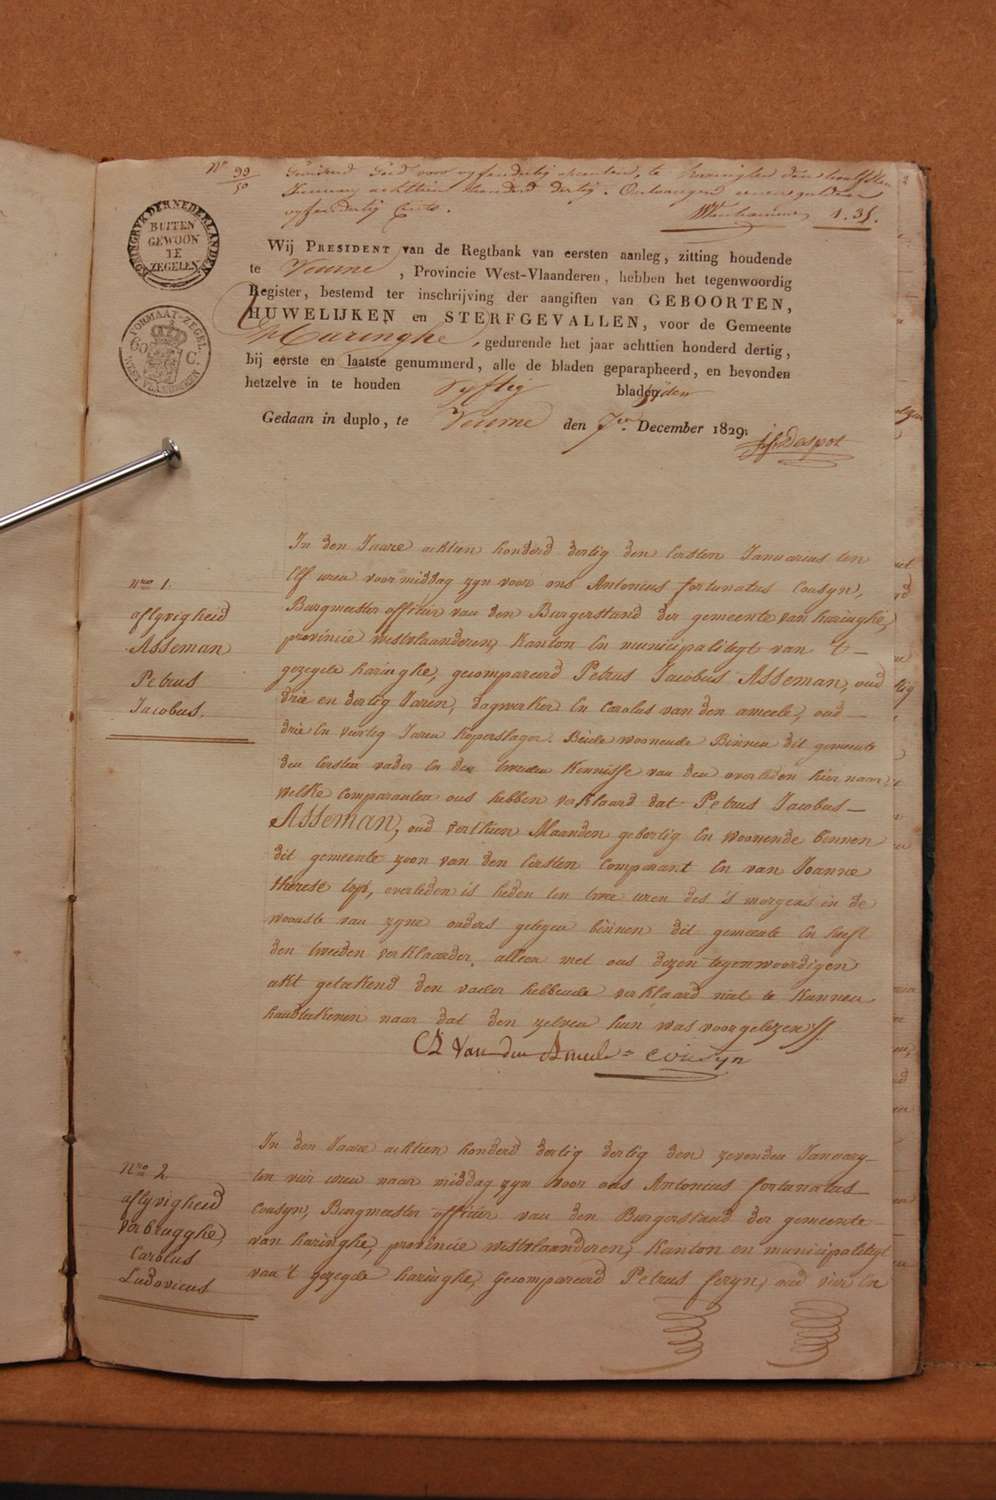 No 99
50
vyfendertig Cents. 1.35.
KONINGRYK DER NEDERLANDEN
BUITEN
GEWOON
TE
ZEGELEN
FORMAAT-ZEGEL
50 C.
WEST VLAANDEREN
Wij PRESIDENT van de Regtbank van eersten aanleg, zitting houdende
te Veurne, Provincie West-Vlaanderen, hebben het tegenwoordig
Register, bestemd ter inschrijving der aangiften van GEBOORTEN,
HUWELIJKEN en STERFGEVALLEN, voor de Gemeente
Haringhe, gedurende het jaar achttien honderd dertig,
bij eerste en laatste genummerd, alle de bladen geparapheerd, en bevonden
hetzelve in te houden vyftig bladzyden
Gedaan in duplo, te Veurne den 7en December 1829.
nro 1.
aflyvigheid
Asseman
Petrus
Jacobus.
In den Jaare achtien honderd dertig den Eersten Januarius ten
Elf uren voormiddag zyn voor ons Antonius fortunatus Cousyn,
Burgmeester officier van den Burgerstand der gemeente van haringhe,
provincie westvlaanderen, Kanton En municipalitegt van t-
gezegde haringhe, gecompareerd Petrus Jacobus Asseman, oud
drie en dertig Jaren, dagwerker En Carolus van den ameele, oud
drie En viertig Jaren koperslager. Beide woonende Binnen dit gemeente
den Eersten vader En den tweeden Kennisse van den overleden hier naer
welke comparanten ons hebben verklaard dat Petrus Jacobus
Asseman, oud veertien Maanden geboortig En woonende binnen
dit gemeente zoon van den Eersten comparant En van Joanne
therese, overleden is heden ten twee uren des 's morgens in de
woonste van zyne ouders gelegen binnen dit gemeente En heeft
den tweeden verklaarder, alleen met ons dezen tegenwoordigen
akt geteekend den vader hebbende verklaard niet te kunnen
handteekenen naer dat den zelven hun was voorgelezen
Van den Ameele cousyn
nro 2
aflyvigheid
Verbrugghe
Carolus
Ludovicus
In den Jaare achtien honderd dertig dertig den zevenden January
ten vier uren naer middag zyn voor ons Antonius fortunatus
Cousyn, Burgmeester officier van den Burgerstand der gemeente
van haringhe, provincie westvlaanderen, Kanton en municipalitegt
van 't gezegde haringhe, Gecompareerd Petrus feryn, oud vier En